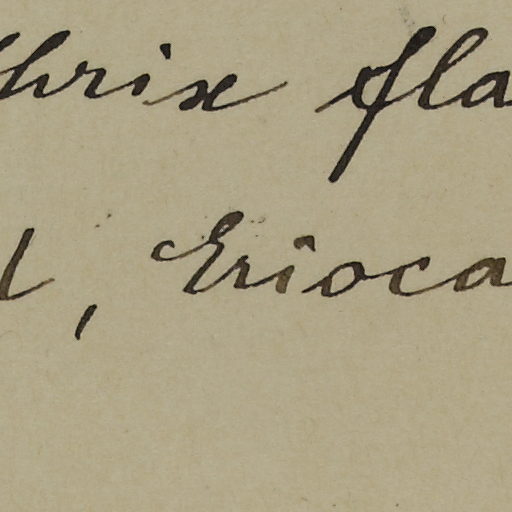 hrix fla
l, Erioca